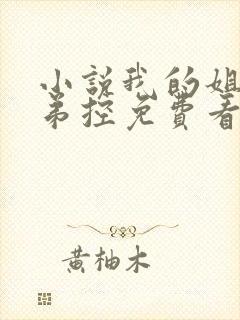 小说我的姐
弟控免费看
黄柚木